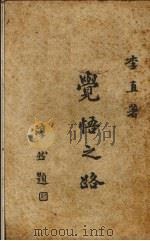 李直著
覺悟之路
題